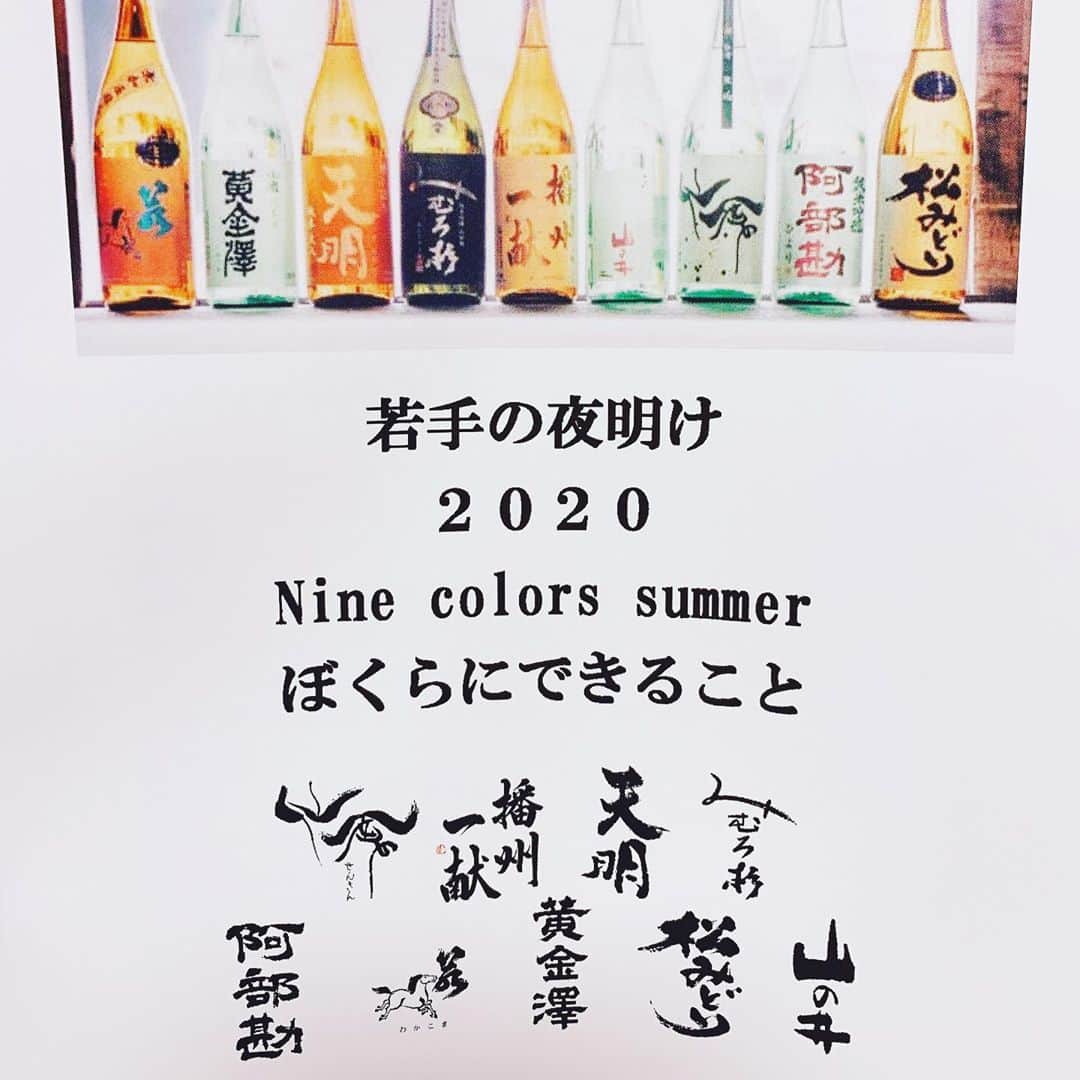 黄金澤
天明
みむろ杉
播州
一献
山の井
阿部勘
松みどり
若手の夜明け
2020
Nine colors summer
ぼくらにできること
せんきん
播州
一献
天明
みむろ杉
阿部勘
わかこま
黄金澤
松みどり
山の井